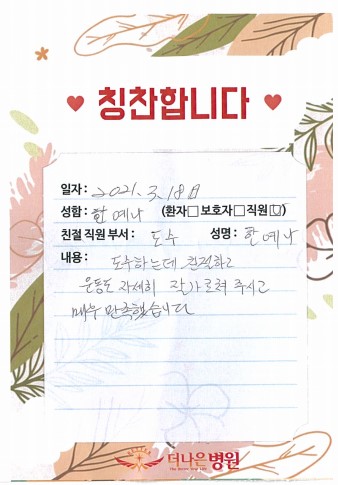 칭찬합니다
일자: 2021. 3. 18일
성함: 한예나 (환자□ 보호자□ 직원☑)
친절 직원 부서: 도수 성명: 한예나
내용: 도수하는데 친절하고
운동도 자세히 잘 가르쳐 주시고
매우 만족했습니다
더나은병원